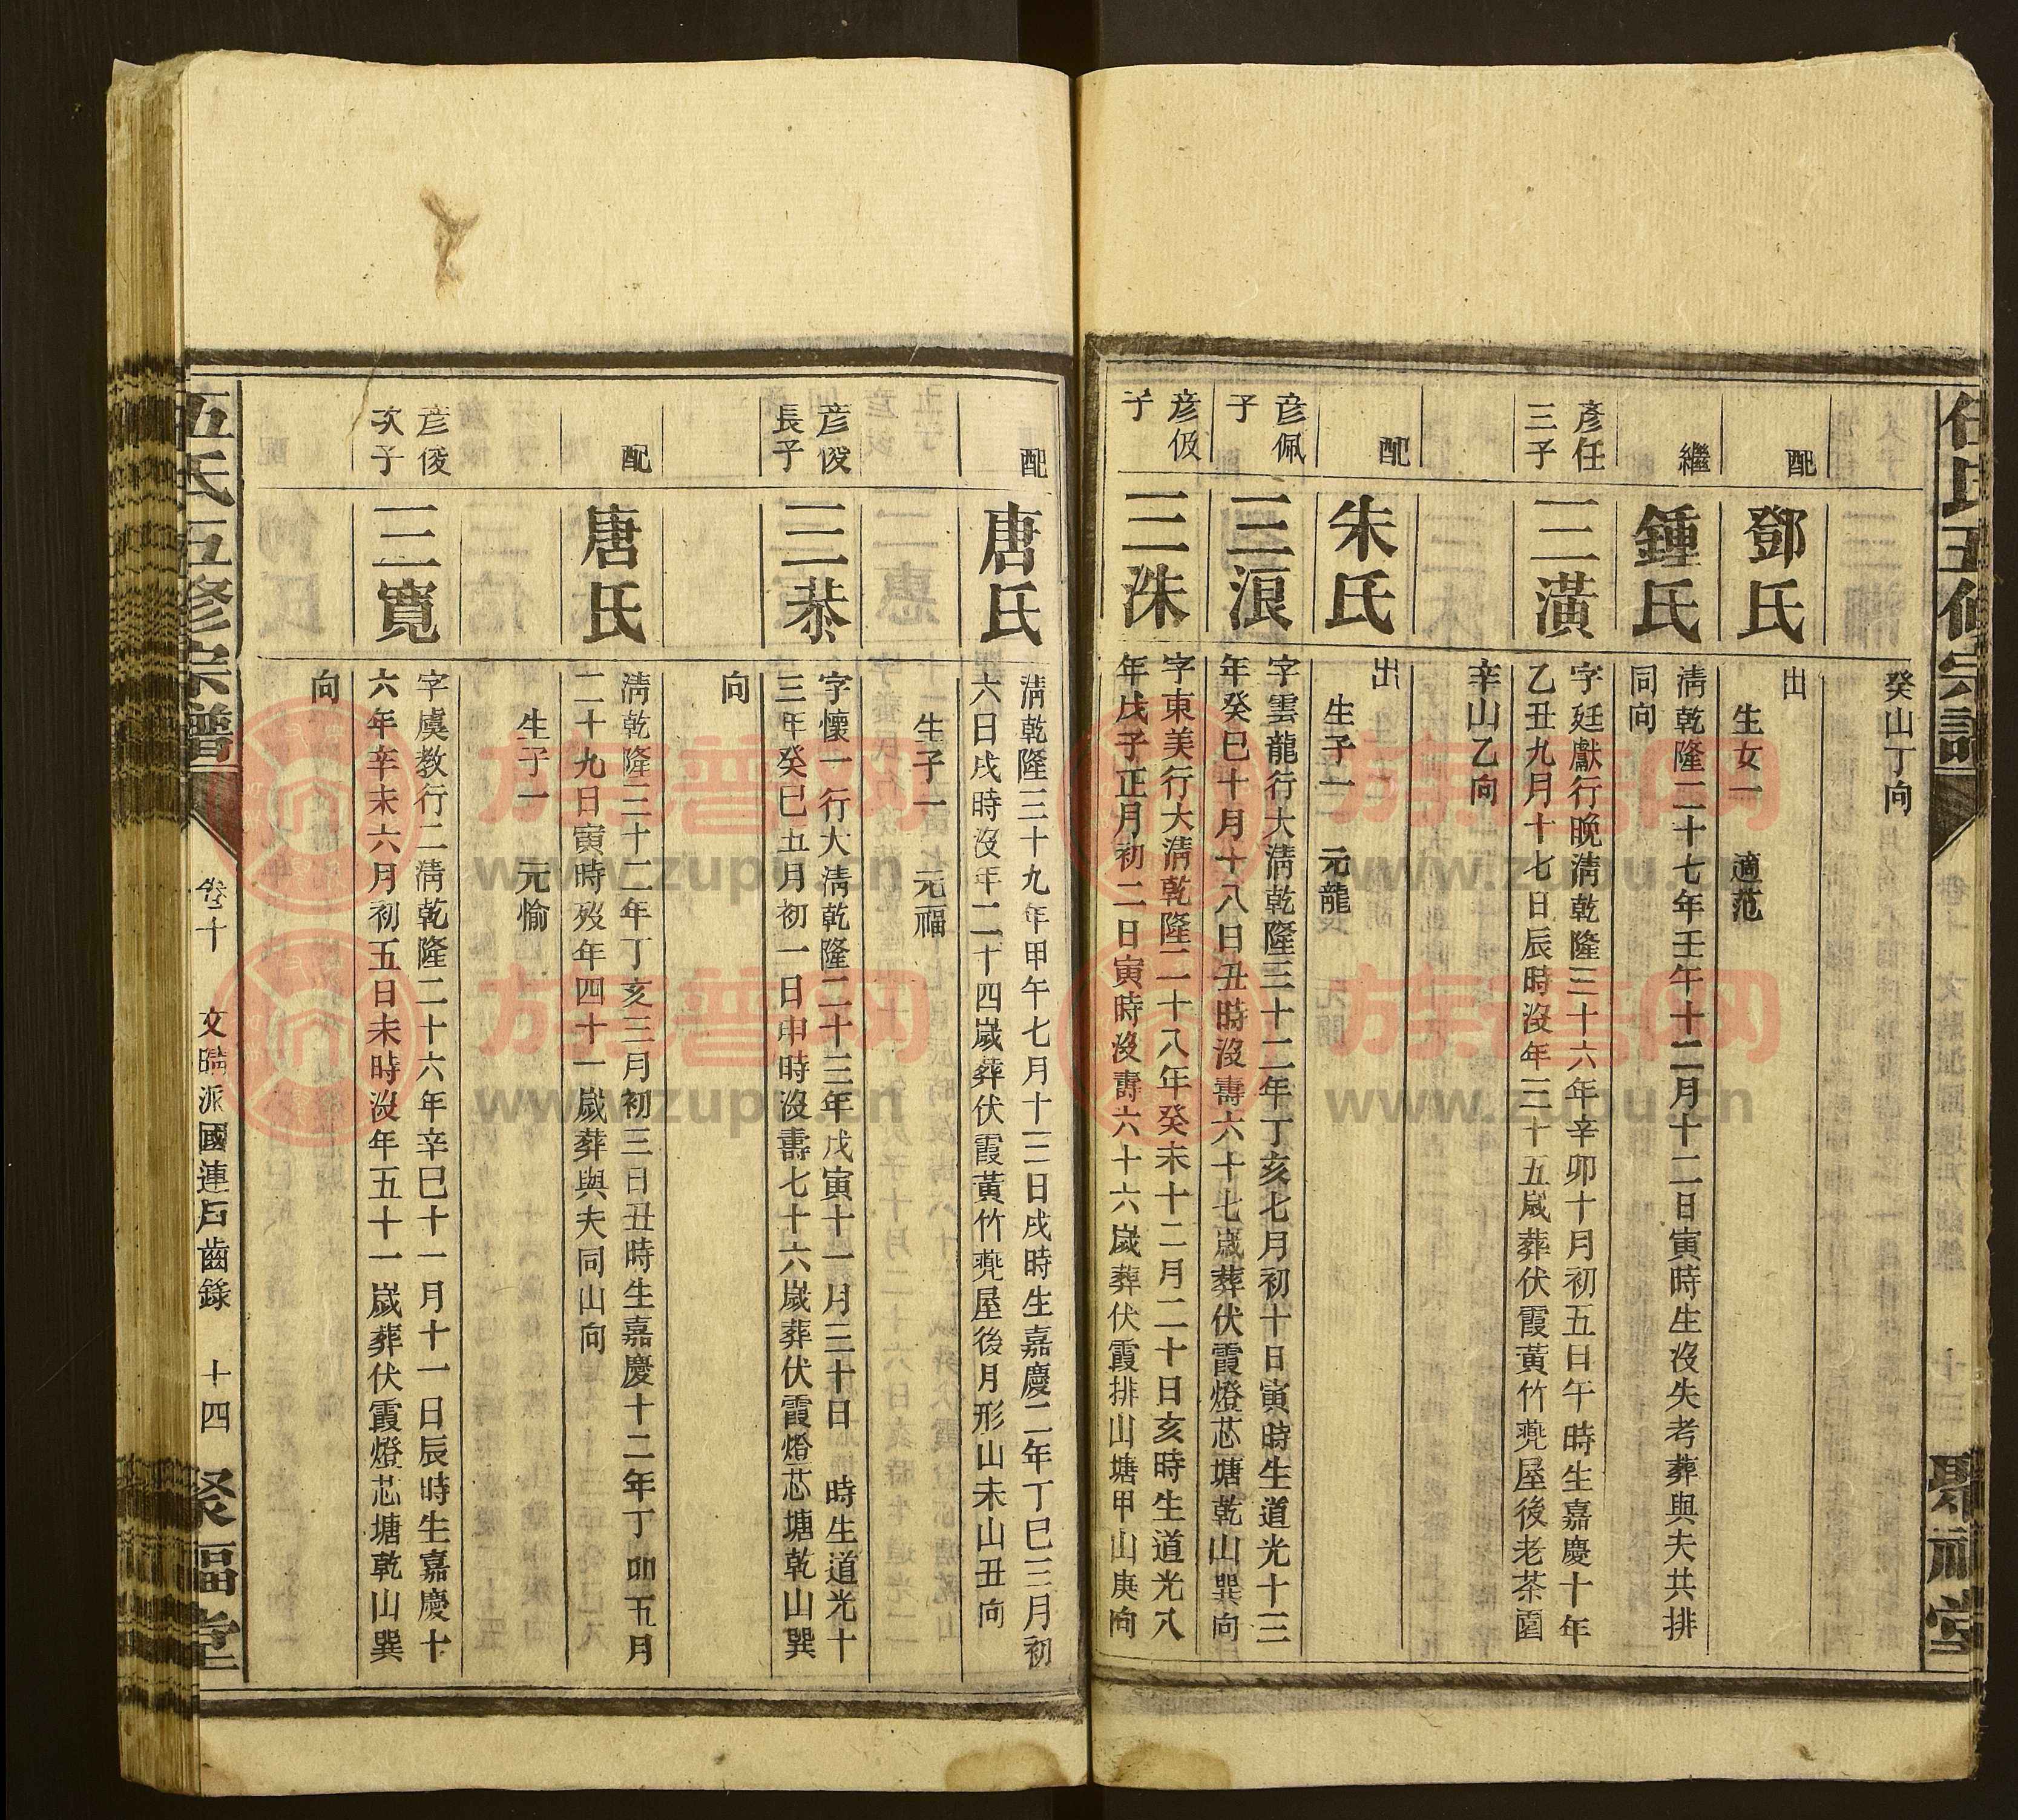 伍氏五修宗譜
聚福堂
癸山丁向
配
鄧氏
出
生女一 適范
繼
鍾氏
淸乾隆二十七年壬午十二月十二日寅時生沒失考葬與夫共排
同向
彥任
三子
三潢
字廷獻行晚淸乾隆三十六年辛卯十月初五日午時生嘉慶十年
乙丑九月十七日辰時沒年三十五歲葬伏霞黃竹兠屋後老茶園
辛山乙向
配
朱氏
出
生子一 元龍
彥佩
子
三浪
字雲龍行大淸乾隆三十二年丁亥七月初十日寅時生道光十三
年癸巳十月十八日丑時沒壽六十七歲葬伏霞燈芯塘乾山巽向
彥伋
子
三洙
字東美行大淸乾隆二十八年癸未十二月二十日亥時生道光八
年戊子正月初二日寅時沒壽六十六歲葬伏霞排山塘甲山庚向
配
唐氏
淸乾隆三十九年甲午七月十二日戌時生嘉慶二年丁巳三月初
六日戌時沒年二十四歲葬伏霞黃竹兠屋後月形山未山丑向
生子一 元福
彥俊
長子
三恭
字懷一行大淸乾隆二十三年戊寅十一月三十日 時生道光十
三年癸巳五月初一日申時沒壽七十六歲葬伏霞燈芯塘乾山巽
向
配
唐氏
淸乾隆三十二年丁亥三月初三日丑時生嘉慶十二年丁卯五月
二十九日寅時歿年四十一歲葬與夫同山向
生子一 元愉
彥俊
次子
三寬
字虞教行二淸乾隆二十六年辛巳十一月十一日辰時生嘉慶十
六年辛未六月初五日未時沒年五十一歲葬伏霞燈芯塘乾山巽
向
伍氏五修宗譜
卷十 文疄派國連戶齒錄 十四
聚福堂
族譜网
www.zupu.cn
族譜网
www.zupu.cn
族譜网
www.zupu.cn
族譜网
www.zupu.cn